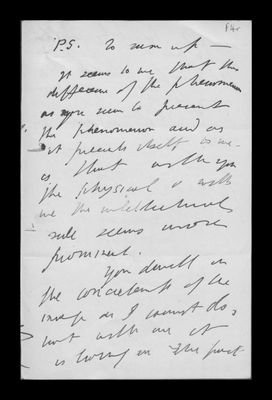 P.S. To sum up —
It seems to me that the
difference of the phenomenon
as you seem to present
the phenomenon and as
it presents itself to me
is that with you
the physical & with
me the intellectual
side seems more
prominent.
You dwell in
the concreteness of the
image as I cannot do,
but with me it
is living in the past